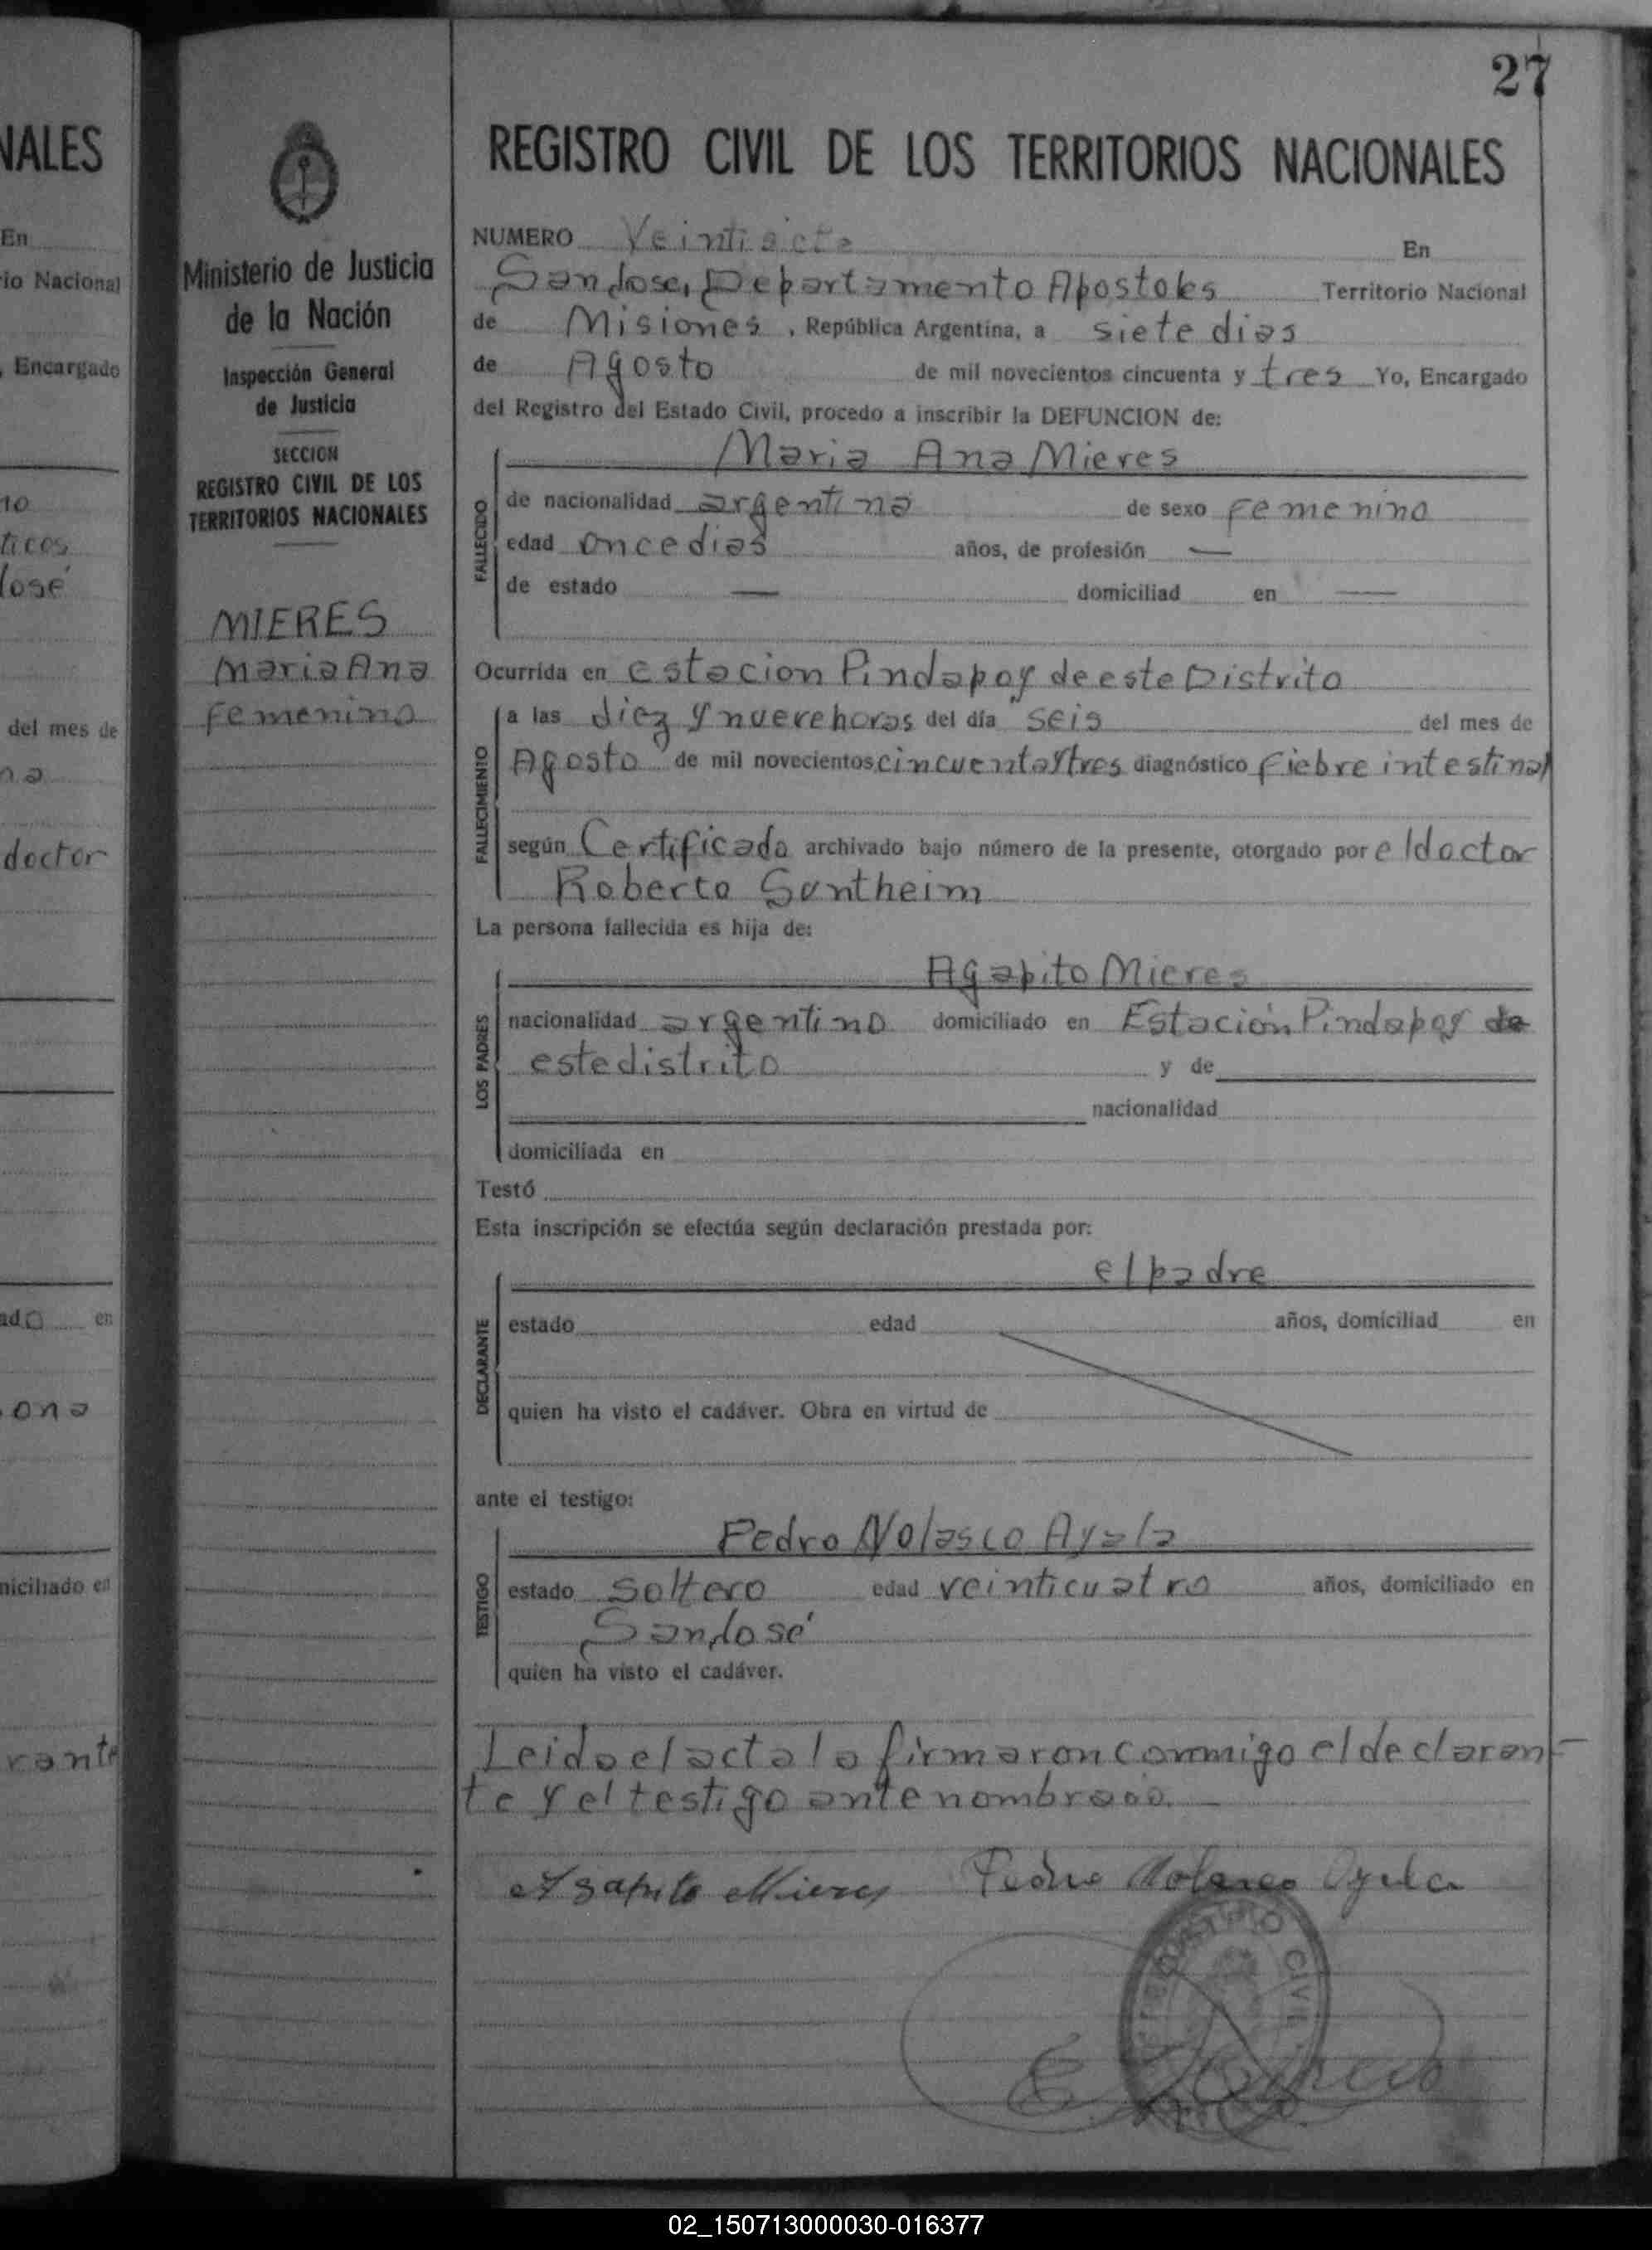 27
NALES
REGISTRO CIVIL DE LOS TERRITORIOS NACIONALES
En
io Nacional
, Encargado
10
ticos
José
del mes de
na
doctor
ado en
ona
niciliado en
rante
Ministerio de Justicia
de la Nación
Inspección General
de Justicia
SECCION
REGISTRO CIVIL DE LOS
TERRITORIOS NACIONALES
MIERES
Maria Ana
Femenino
NUMERO Veintisiete En
San Jose, Departamento Apostoles Territorio Nacional
de Misiones, República Argentina, a siete dias
de Agosto de mil novecientos cincuenta y tres Yo, Encargado
del Registro del Estado Civil, procedo a inscribir la DEFUNCION de:
FALLECIDO
Maria Ana Mieres
de nacionalidad argentina de sexo Femenino
edad once dias años, de profesión —
de estado — domiciliad en —
Ocurrida en estacion Pindapoy de este Distrito
FALLECIMIENTO
a las diez y nueve horas del día seis del mes de
Agosto de mil novecientos cincuenta y tres diagnóstico fiebre intestinal
según Certificado archivado bajo número de la presente, otorgado por el doctor
Roberto Sontheim
La persona fallecida es hija de:
LOS PADRES
Agapito Mieres
nacionalidad argentino domiciliado en Estación Pindapoy de
este distrito y de
nacionalidad
domiciliada en
Testó
Esta inscripción se efectúa según declaración prestada por:
DECLARANTE
el padre
estado edad años, domiciliad en
quien ha visto el cadáver. Obra en virtud de
ante el testigo:
TESTIGO
Pedro Nolasco Ayala
estado soltero edad veinticuatro años, domiciliado en
San José
quien ha visto el cadáver.
Leido el acta lo firmaron conmigo el declaran-
te y el testigo antenombrado. —
Agapito Mieres Pedro Nolasco Ayala
REGISTRO CIVIL
02_150713000030-016377